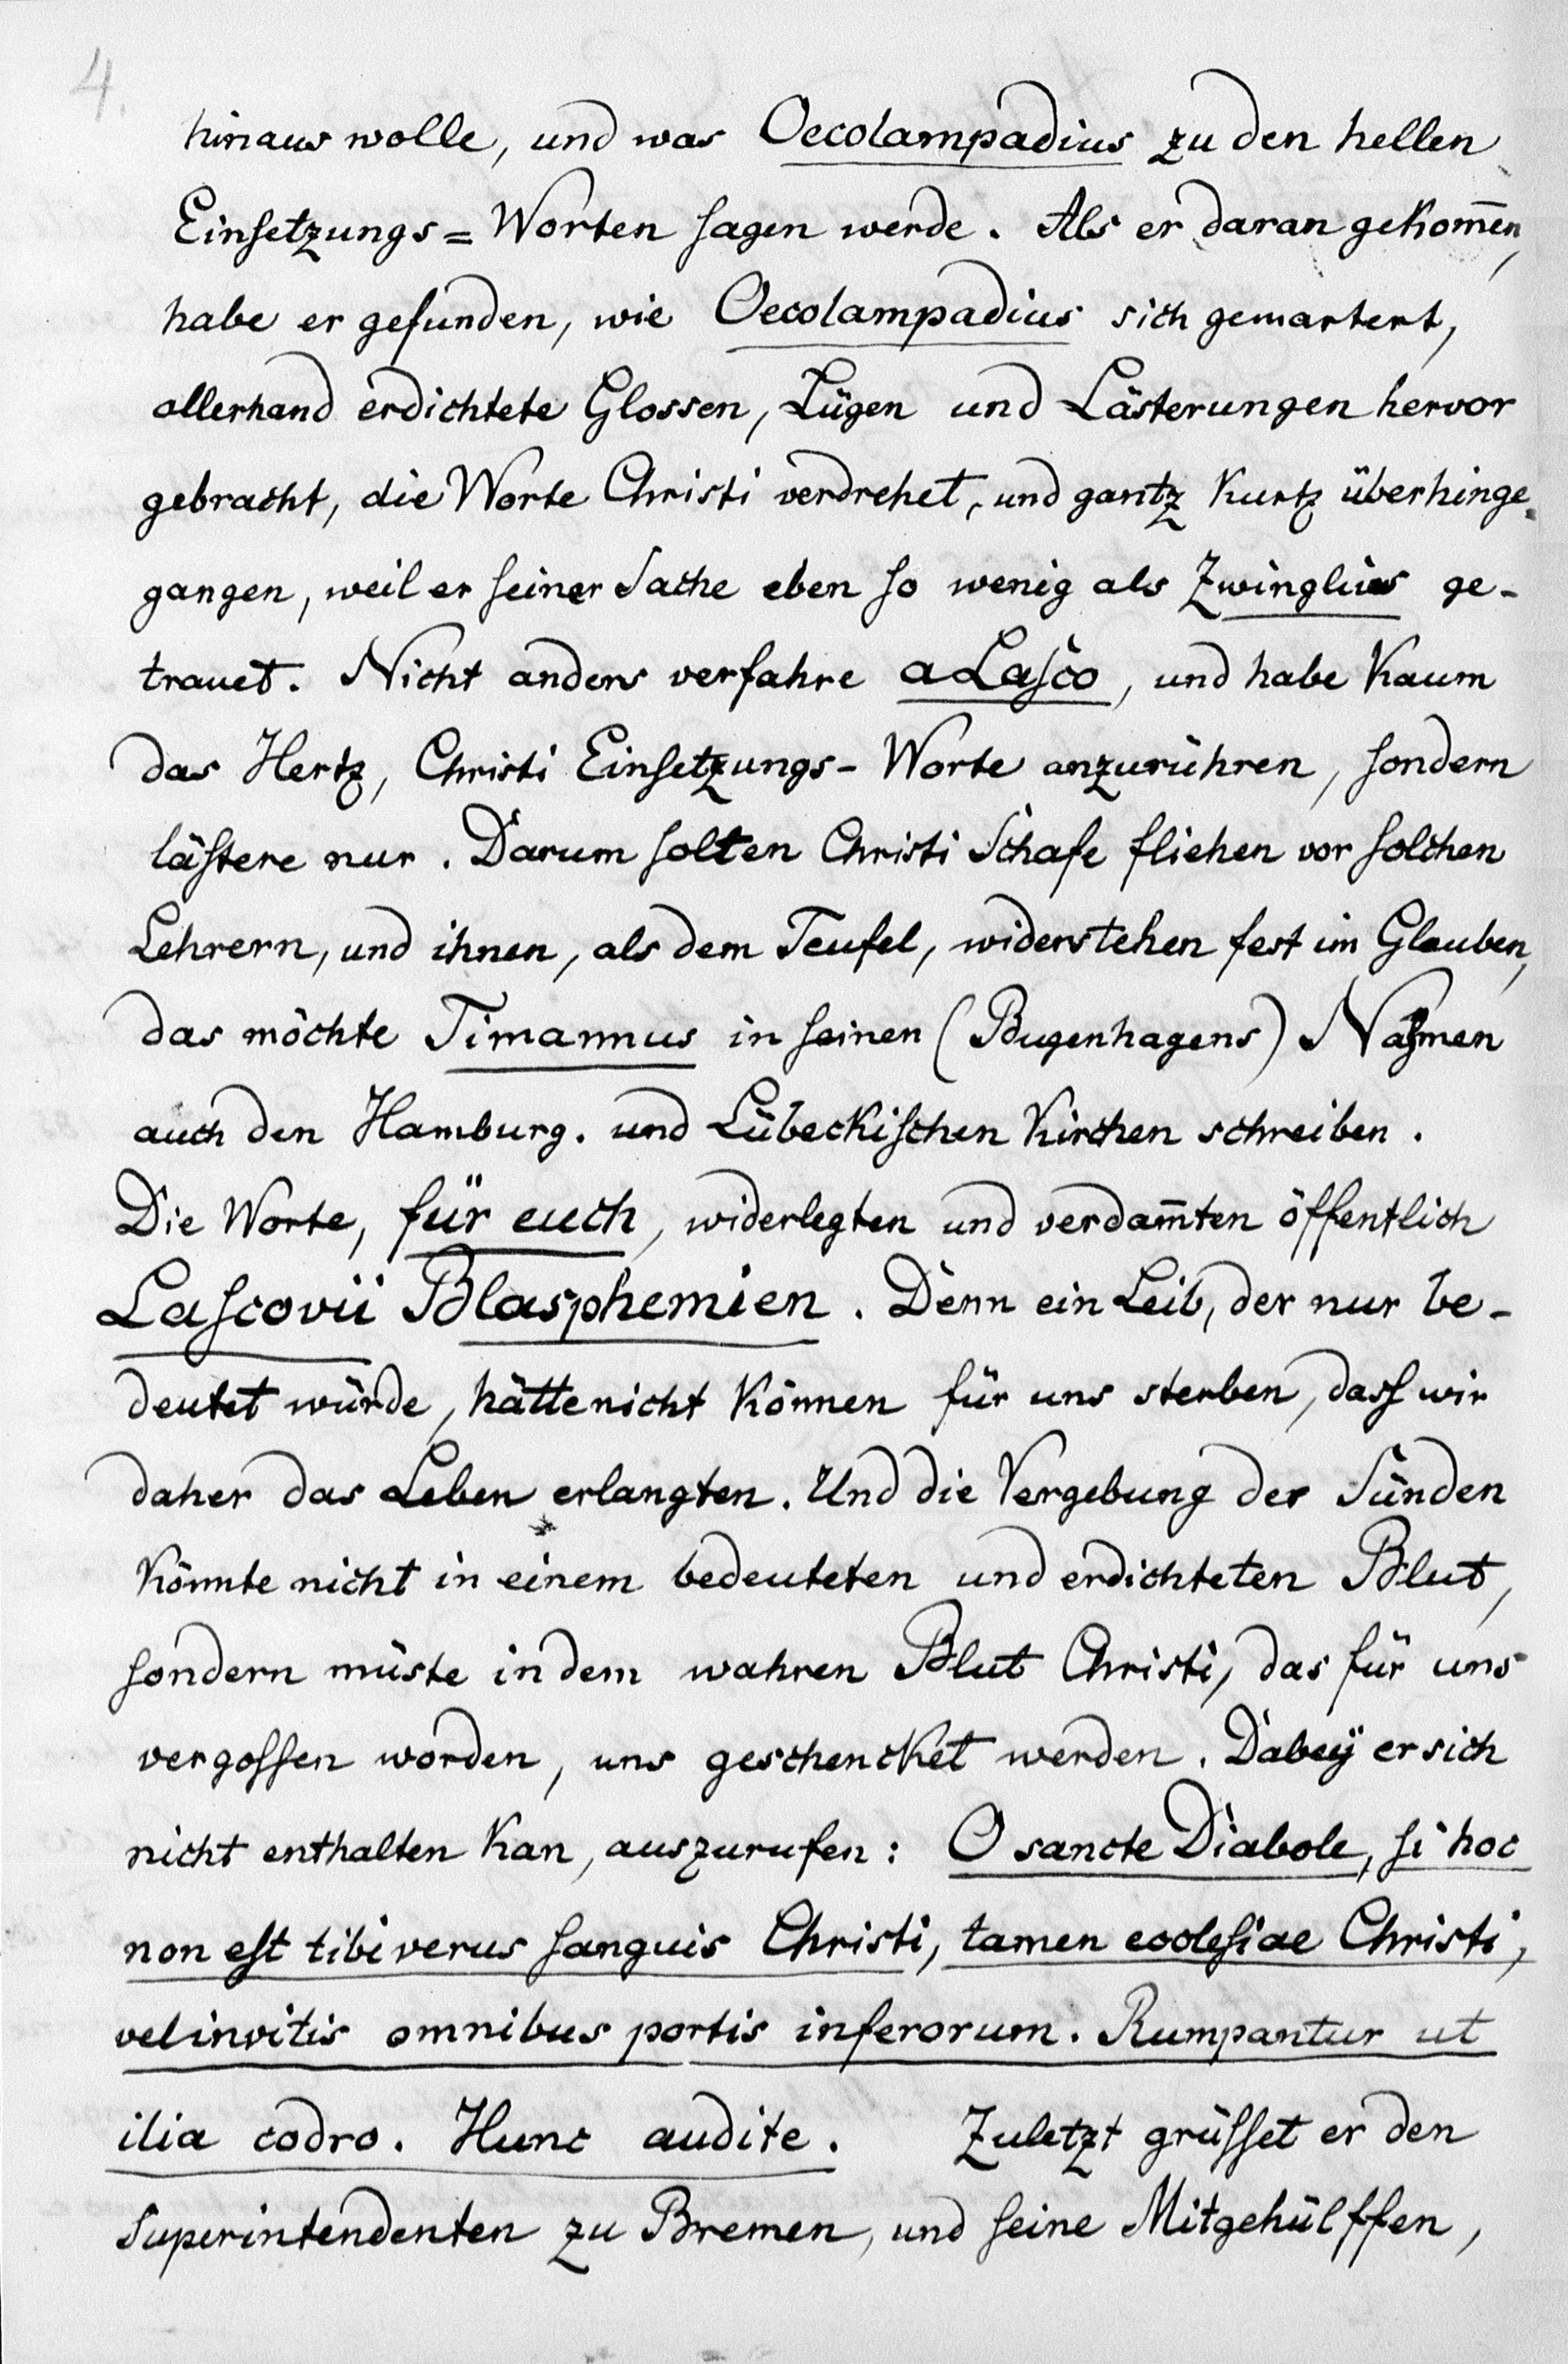 4.
hinaus wolle, und was Oecolampadius zu den hellen
Einſetzungs= Worten ſagen werde. Als er daran gekom̅en,
habe er gefunden, wie Oecolampadius sich gemartert,
allerhand erdichtete Glossen, Lügen und Lästerungen hervor
gebracht, die Worte Christi verdrehet, und gantz kurtz überhinge=
gangen, weil er ſeiner Sache eben ſo wenig als Zwinglius ge-
trauet. Nicht anders verfahre a Laſco, und habe kaum
das Hertz, Christi Einſetzungs- Worte anzurühren, ſondern
läſtere nur. Darum ſolten Christi Schafe fliehen vor ſolchen
Lehrern, und ihnen, als dem Teufel, widerstehen fest im Glauben,
das möchte Timannus in ſeinen (Bugenhagens) Nahmen
auch den Hamburg. und Lübeckiſchen Kirchen schreiben.
Die Worte, für euch, widerlegten und verdam̅ten öffentlich
Laſcovii Blasphemien. Denn ein Leib, der nur be-
deutet würde, hätte nicht können für uns sterben, daſs wir
daher das Leben erlangten. Und die Vergebung der Sünden
könnte nicht in einem bedeuteten und erdichteten Blut,
ſondern müste in dem wahren Blut Christi, das für uns
vergoſſen worden, uns geschencket werden. Dabeÿ er sich
nicht enthalten kan, auszurufen: O sancte Diabole, ſi hoc
non eſt tibi verus ſanguis Christi, tamen eccleſiae Christi,
vel invitis omnibus portis inferorum. Rumpantur ut
ilia codro. Hunc audite. Zuletzt grüſſet er den
Superintendenten zu Bremen, und ſeine Mitgehülffen,